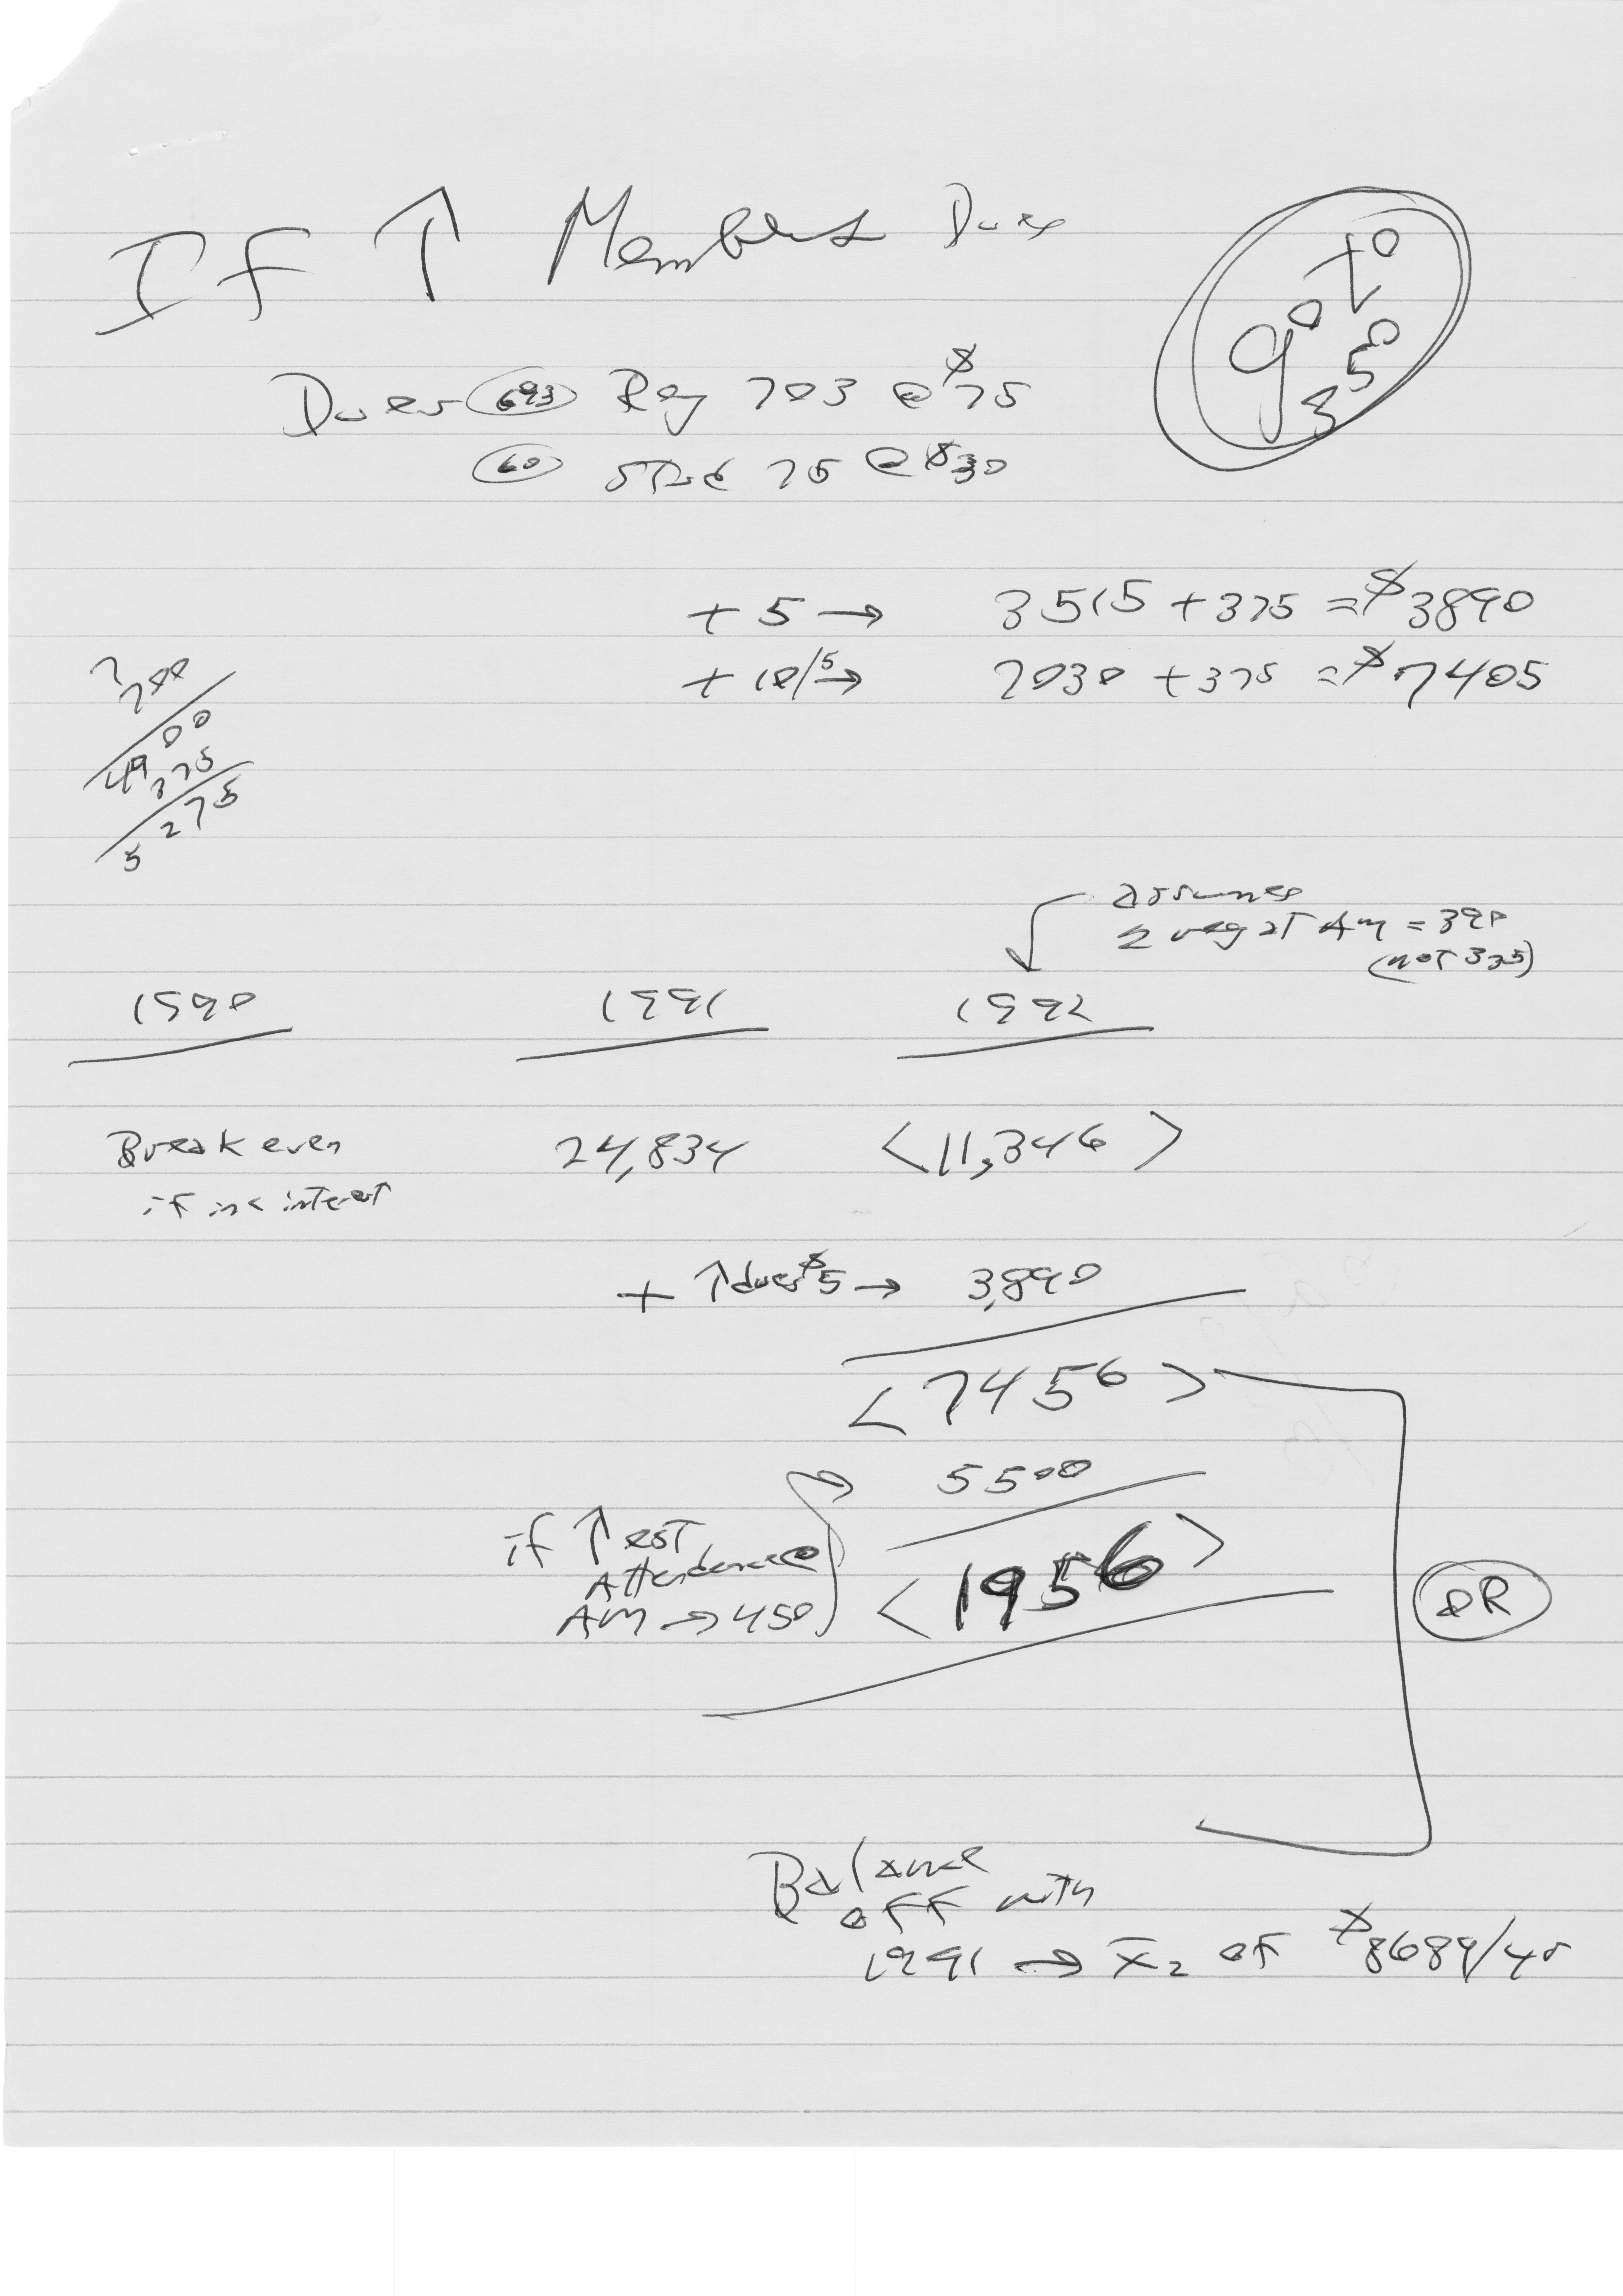 If ↑ Members Dues
90 to 35⁰
Dues (693) Reg 703 @ $75
(60) Stud 75 @ $30
+ 5 → 3515 + 375 = $3890
+ 10/5 → 7030 + 375 = $7405
7
700
4900
375
5275
assumes
≥ reg at AM = 390
(not 335)
1990 1991 1992
Break even 24,834 <11,346>
if inc interest
+ ↑ dues $5 → 3,890
<7456>
5500
if ↑ est
Attendance
AM → 450
<1956>
OR
Balance
off with
1991 → x̄₂ of $8689/yr